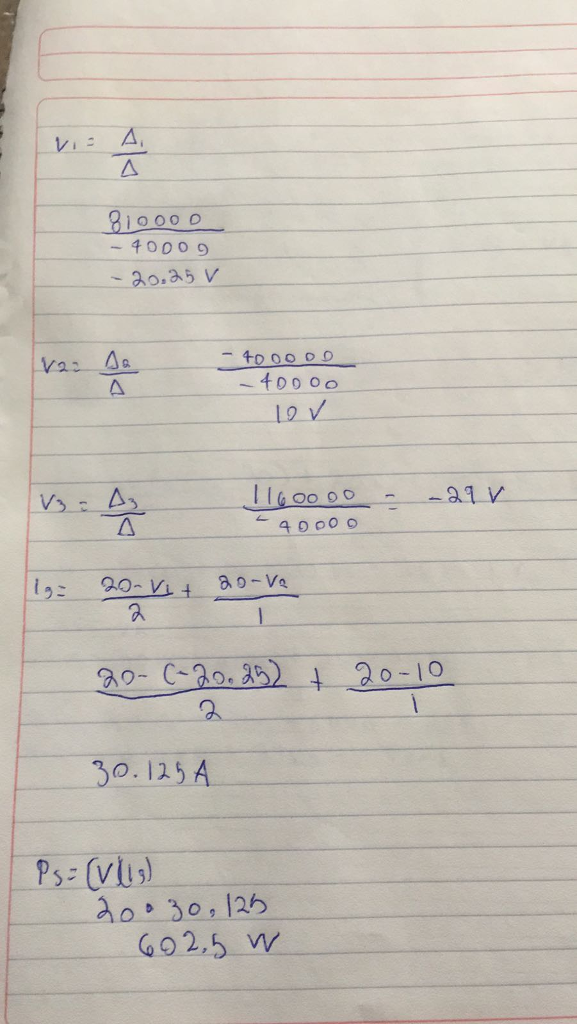 V1 = Δ1
Δ
810000
- 40000
- 20.25 V
V2 = Δ2 - 400000
Δ - 40000
10 V
V3 = Δ3 1160000 = -29 V
Δ - 40000
Ig = 20-V1 + 20-V2
2 1
20-(-20.25) + 20-10
2 1
30.125A
Ps = (V)(Ig)
20 • 30.125
602.5 W